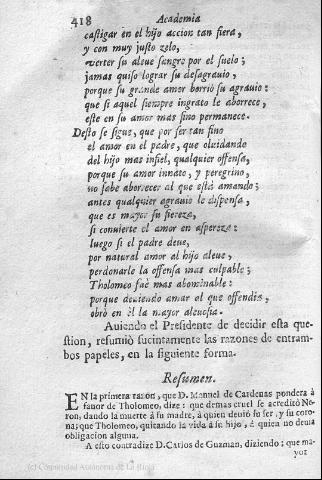 418 Academia
castigar en el hijo accion tan fiera,
y con muy justo zelo,
verter su aleue sangre por el suelo;
jamas quiso lograr su desagrauio,
porque su grande amor borrió su agrauio:
que si aquel siempre ingrato le aborrece,
este en su amor mas fino permanece.
Desto se sigue, que por ser tan fino
el amor en el padre, que oluidando
del hijo mas infiel, qualquier offensa,
porque su amor innato, y peregrino,
no sabe aborrecer al que està amando;
antes qualquier agrauio le dispensa,
que es mayor su fiereza,
si conuierte el amor en aspereza:
luego si el padre deue,
por natural amor al hijo aleue,
perdonarle la offensa mas culpable;
Tholomeo fuè mas abominable:
porque deuiendo amar el que offendia,
obrò en èl la mayor aleuosia.
Auiendo el Presidente de decidir esta que-
stion, resumiò sucintamente las razones de entram-
bos papeles, en la siguiente forma.
Resumen.
EN la primera razon, que D. Manuel de Cardenas pondera à
fauor de Tholomeo, dize: que demas cruel se acreditò Ne-
ron, dando la muerte à su madre, à quien deuiò su ser, y su coro-
na; que Tholomeo, quitando la vida à su hijo, à quien no deuia
obligacion alguna.
A esto contradize D. Carlos de Guzman, diziendo; que ma-
yor
(c) Comunidad Autónoma de La Rioja